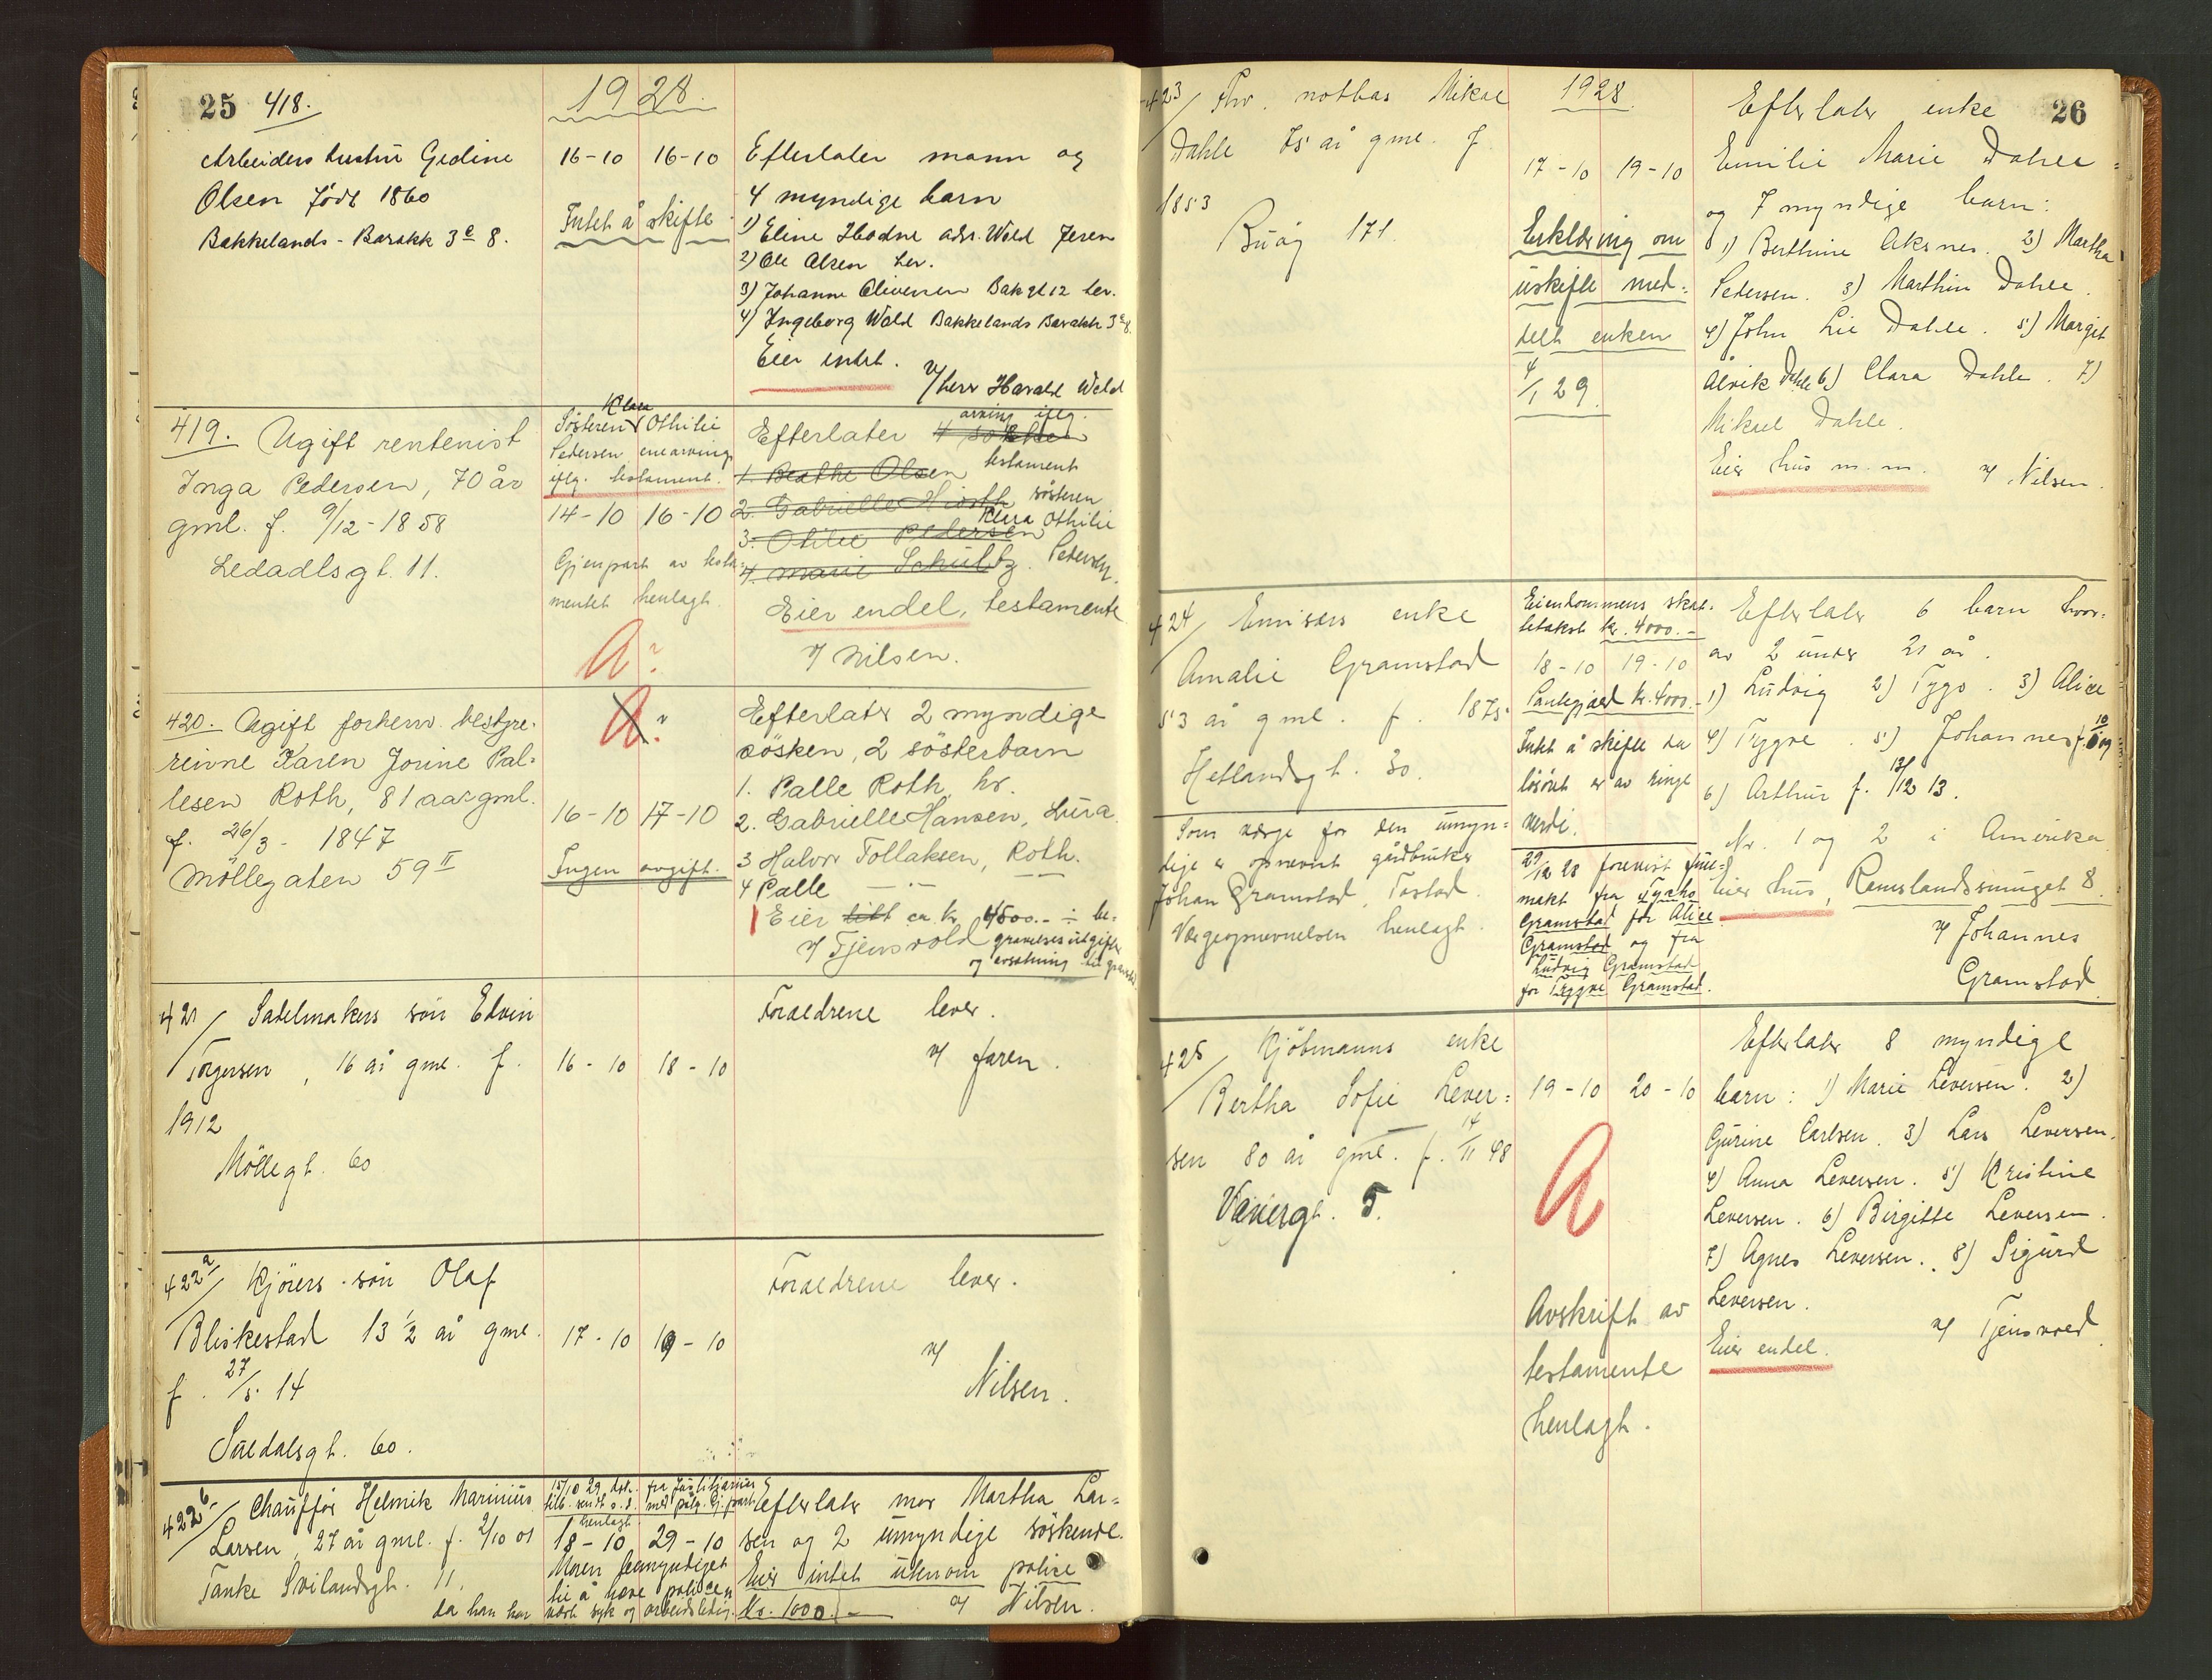 25 418.
1928.
Arbeiders hustru Gedine
Olsen født 1860
Bakkelands-Barakk 3e 8.
16-10 16-10
Intet å skifte
Efterlater mann og
4 myndige barn
1) Eline Hodne adr. Wold Jeren
2) Ole Olsen her.
3) Johanne Oliversen Bakgt 12 her.
4) Ingeborg Wold Bakkelands Barakk 3e 8.
Eier intet.
v/ herr Harald Wold
419. Ugift rentenist
Inga Pedersen, 70 år
gml. f. 9/12-1858
Ledaalsgt. 11.
Klara
Søsteren Othilie
Pedersen enearving
iflg. testament.
14-10 16-10
Gjenpart av testa-
mentet henlagt.
A?
arving iflg.
Efterlater 4 søsken
testament
1. Beathe Olsen
2. Gabrielle Hiorth søsteren
Klara Othilie
3. Otilie Pedersen
4. Marie Schultz. Pedersen.
Eier endel, testamente
v/ Nilsen.
420. Ugift forhenv. bestyre-
reinne Karen Jorine Pal-
lesen Roth, 81 aar gml.
f. 26/3 - 1847
Möllegaten 59 II
A?
16-10 17-10
Ingen avgift.
Efterlater 2 myndige
søsken, 2 søsterbarn
1. Palle Roth, hr.
2. Gabrielle Hansen, Lura
3 Halvor Tollaksen, Roth.
4 Palle —"—
Eier litt ca. kr. 4500.- ÷ be-
gravelsesutgifter
v/ Tjensvold
421/ Sadelmakers søn Edvin
Torgersen, 16 år gml. f.
1912
Möllegt. 60
16-10 18-10
Foraeldrene lever.
v/ faren.
422a/ Kjörers søn Olaf
Bliskestad 13 1/2 år gml.
f. 27/5. 14
Suldalsgt. 60.
17-10 19-10
Foraeldrene lever.
v/
Nilsen.
422b/ Chaufför Helmik Marinius
Larsen, 27 år gml. f. 2/10 01
Tanke Svilandsgt. 11.
da han har
henlagt
18-10 29-10
Moren bemyndiget
til å heve policen
vært syk og arbeidsledig.
Efterlater mor Martha Lar-
sen og 2 umyndige søskende.
Eier intet utenom police
kr. 1000.- v/ Nilsen.
26
1928
423/ Fhv. notbas Mikal
Dahle 75 år gml. f.
1853
Buøy 171.
17-10 19-10
Erklæring om
uskifte med-
delt enken
4/1 29.
Efterlater enke
Emilie Marie Dahle
og 7 myndige barn:
1) Berthine Aksnes. 2) Martha
Pedersen. 3) Marthin Dahle.
4) John Lie Dahle. 5) Margit
Ålvik Dahle 6) Clara Dahle. 7)
Mikael Dahle.
Eier hus m.m. v/ Nilsen.
424/ Emisærs enke
Amalie Gramstad
53 år gml. f. 1875.
Hetlandsgt. 30.
Som verge for den umyn-
dige er opnevnt gårdbruker
Johan Gramstad, Tastad.
Vergeopnevnelsen henlagt.
Eiendommens skat-
tetakst kr. 4000.-
18-10 19-10
Pantegjæld kr. 4000.-
Intet å skifte da
løsöret er av ringe
verdi.
29/12 28 forevist full-
makt fra Tycho
Gramstad for Alice
Gramstad og fra
Ludvig Gramstad
for Trygve Gramstad.
Efterlater 6 barn hvor-
av 2 under 21 år.
1) Ludvig 2) Tygo. 3) Alice
4) Trygve. 5) Johannes
6) Arthur f. 13/12 13.
Nr. 1 og 2 i Amerika
Eier hus, Ramslandssmuget 8.
v/ Johannes
Gramstad
425/ Kjöbmanns enke
Bertha Sofie Lever-
sen 80 år gml. f. 14/11 48
Vævergt. 5.
19-10 20-10
A
Avskrift av
testamente
henlagt.
Efterlater 8 myndige
barn: 1) Marie Leversen. 2)
Gurine Carlsen. 3) Lars Leversen.
4) Anna Leversen. 5) Kristine
Leversen. 6) Birgitte Leversen.
7) Agnes Leversen. 8) Sigurd
Leversen.
Eier endel. v/ Tjensvold.